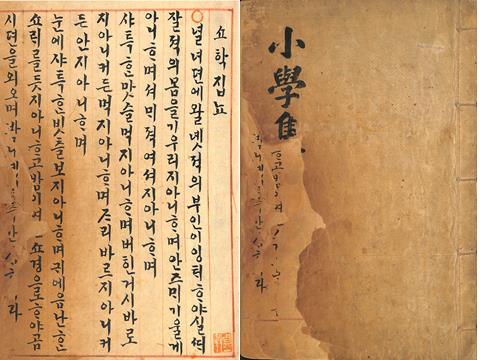 쇼학집뇨
○녈녀뎐에왈녯적의부인이잉ᄐᆡᄒᆞ야실
잘적의몸을기우리지아니ᄒᆞ며안즈ᄆᆡ기울게
아니ᄒᆞ며셔ᄆᆡ적여셔지아니ᄒᆞ며
샤특ᄒᆞᆫ맛슬먹지아니ᄒᆞ며버힌거시바로
지아니커든먹지아니ᄒᆞ며ᄌᆞ리바르지아니커
든안지아니ᄒᆞ며
눈에샤특ᄒᆞᆫ빗츨보지아니ᄒᆞ며귀에음난ᄒᆞᆫ
쇼ᄅᆡ를듯지아니ᄒᆞ고밤이여쇼경을노ᄒᆞ야곰
시뎐을외오며
小學